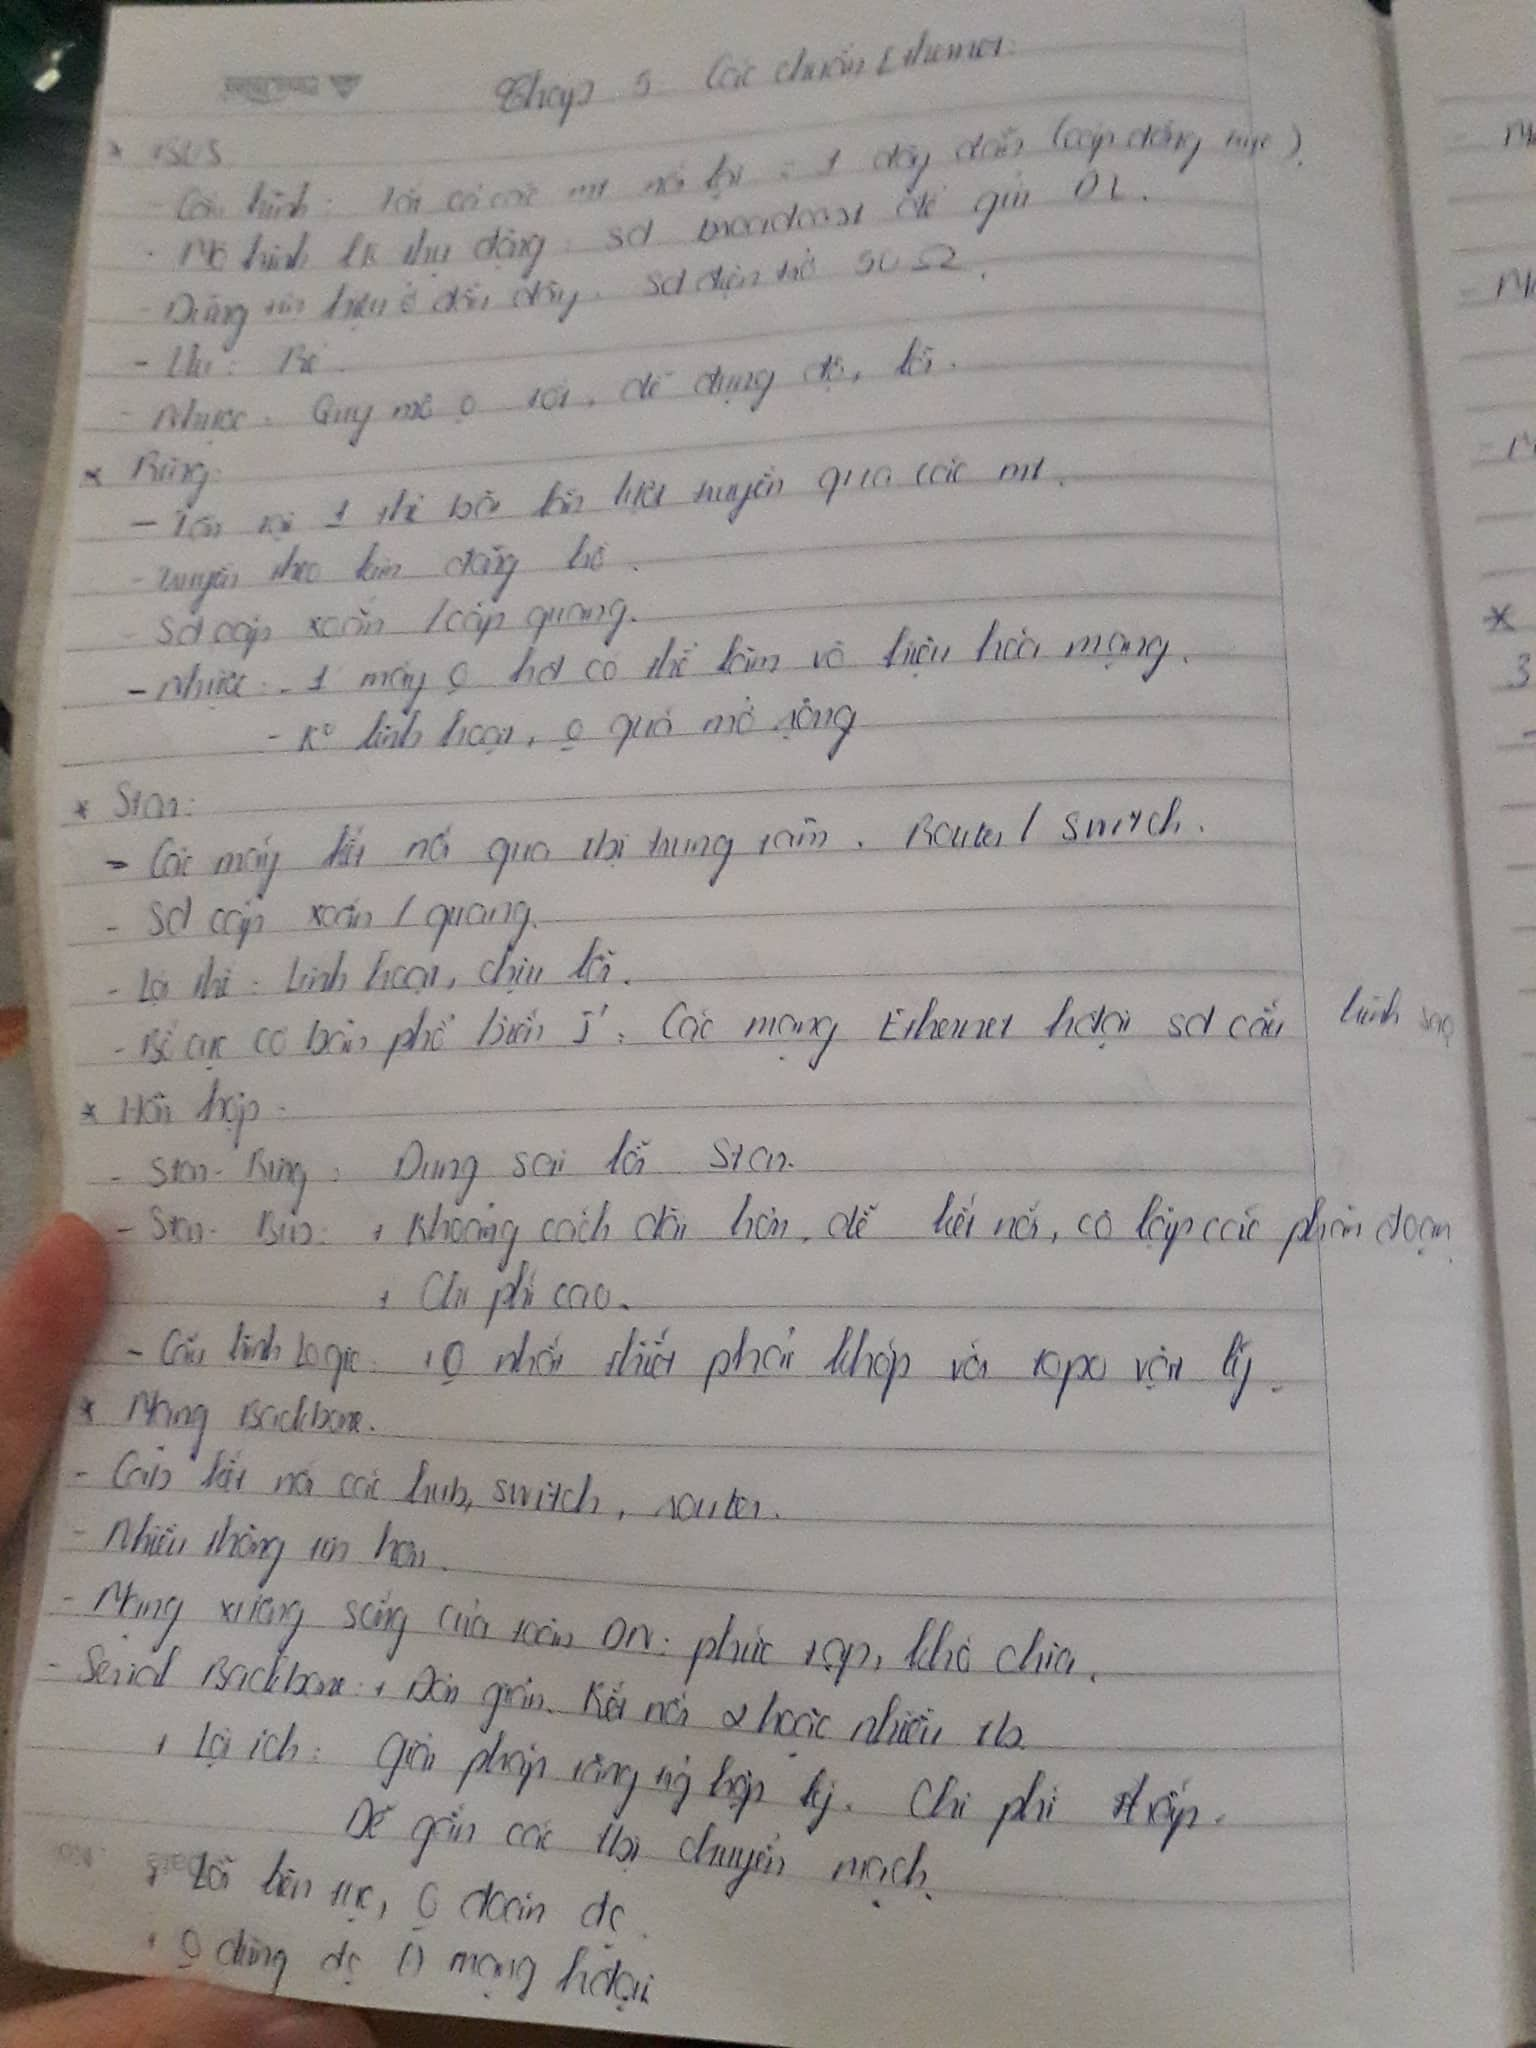 Chap 5: Các chuẩn Ethernet.
* BUS
- Cấu hình: Tất cả các mt nối lại = 1 dây dẫn (cáp đồng trục).
- Mô hình lk thụ động: sd broadcast để gửi DL.
- Dừng tín hiệu ở đầu dây. Sd điện trở 50 Ω.
- Ưu: Rẻ.
- Nhược: Quy mô o tốt, dễ đụng độ, lỗi.
* Ring:
- Tồn tại 1 thẻ bài lần lượt truyền qua các mt.
- truyền theo kim đồng hồ.
- Sd cáp xoắn / cáp quang.
- Nhược: - 1 máy o hđ có thể làm vô hiệu hóa mạng.
- Ko linh hoạt, o quá mở rộng
* Star:
- Các máy kết nối qua tbị trung tâm. Router / Switch.
- Sd cáp xoắn / quang.
- Lợi thế: Linh hoạt, chịu lỗi.
- Bố cục cơ bản phổ biến I': Các mạng Ethernet hđại sd cấu hình sao
* Hỗn hợp:
- Star-Ring: Dung sai lỗi Star.
- Star-Bus: + Khoảng cách dài hơn, dễ kết nối, cô lập các phân đoạn
+ Chi phí cao.
- Cấu hình Logic: + O nhất thiết phải khớp với topo vật lý.
* Mạng Backbone.
- Cáp kết nối các hub, switch, router.
- Nhiều thông tin hơn.
- Mạng xương sống của toàn DN: phức tạp, khó chia.
- Serial Backbone: + Đơn giản. Kết nối 2 hoặc nhiều tb.
+ Lợi ích: Giải pháp tăng tg hợp lý. Chi phí thấp.
Dễ gắn các tbị chuyển mạch.
+ Lỗi liên tục, o đoán đc.
+ O dùng đc () mạng hđại